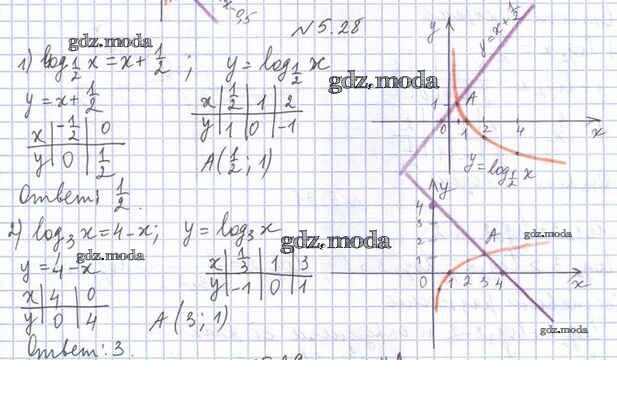 x-0,5
N 5.28
gdz.moda
1) log_{1/2} x = x + 1/2 ; y = log_{1/2} x
y = x + 1/2
x | -1/2 | 0
y | 0 | 1/2
x | 1/2 | 1 | 2
y | 1 | 0 | -1
A (1/2 ; 1)
Ответ: 1/2.
gdz.moda
y
y = x + 1/2
1
A
0 1 2 4 x
y = log_{1/2} x
2) log_3 x = 4 - x; y = log_3 x
gdz.moda
gdz.moda
y = 4 - x
x | 4 | 0
y | 0 | 4
x | 1/3 | 1 | 3
y | -1 | 0 | 1
A (3 ; 1)
Ответ: 3.
y
4
3
2
1
A
gdz.moda
0 1 2 3 4 x
gdz.moda